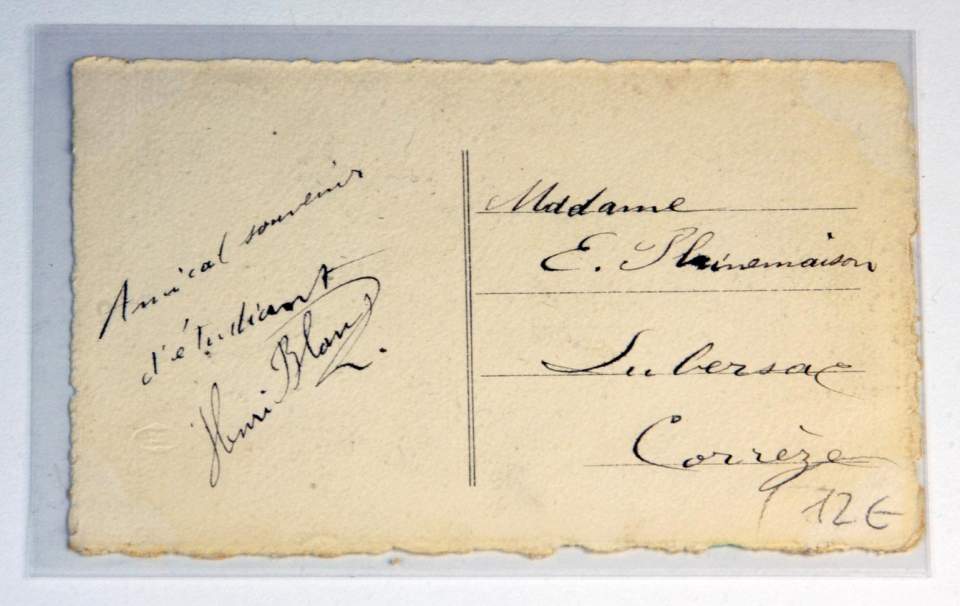 Amical souvenir
d'étudiant
Henri Blanc
Madame
E. Plainemaison
Lubersac
Corrèze
12€